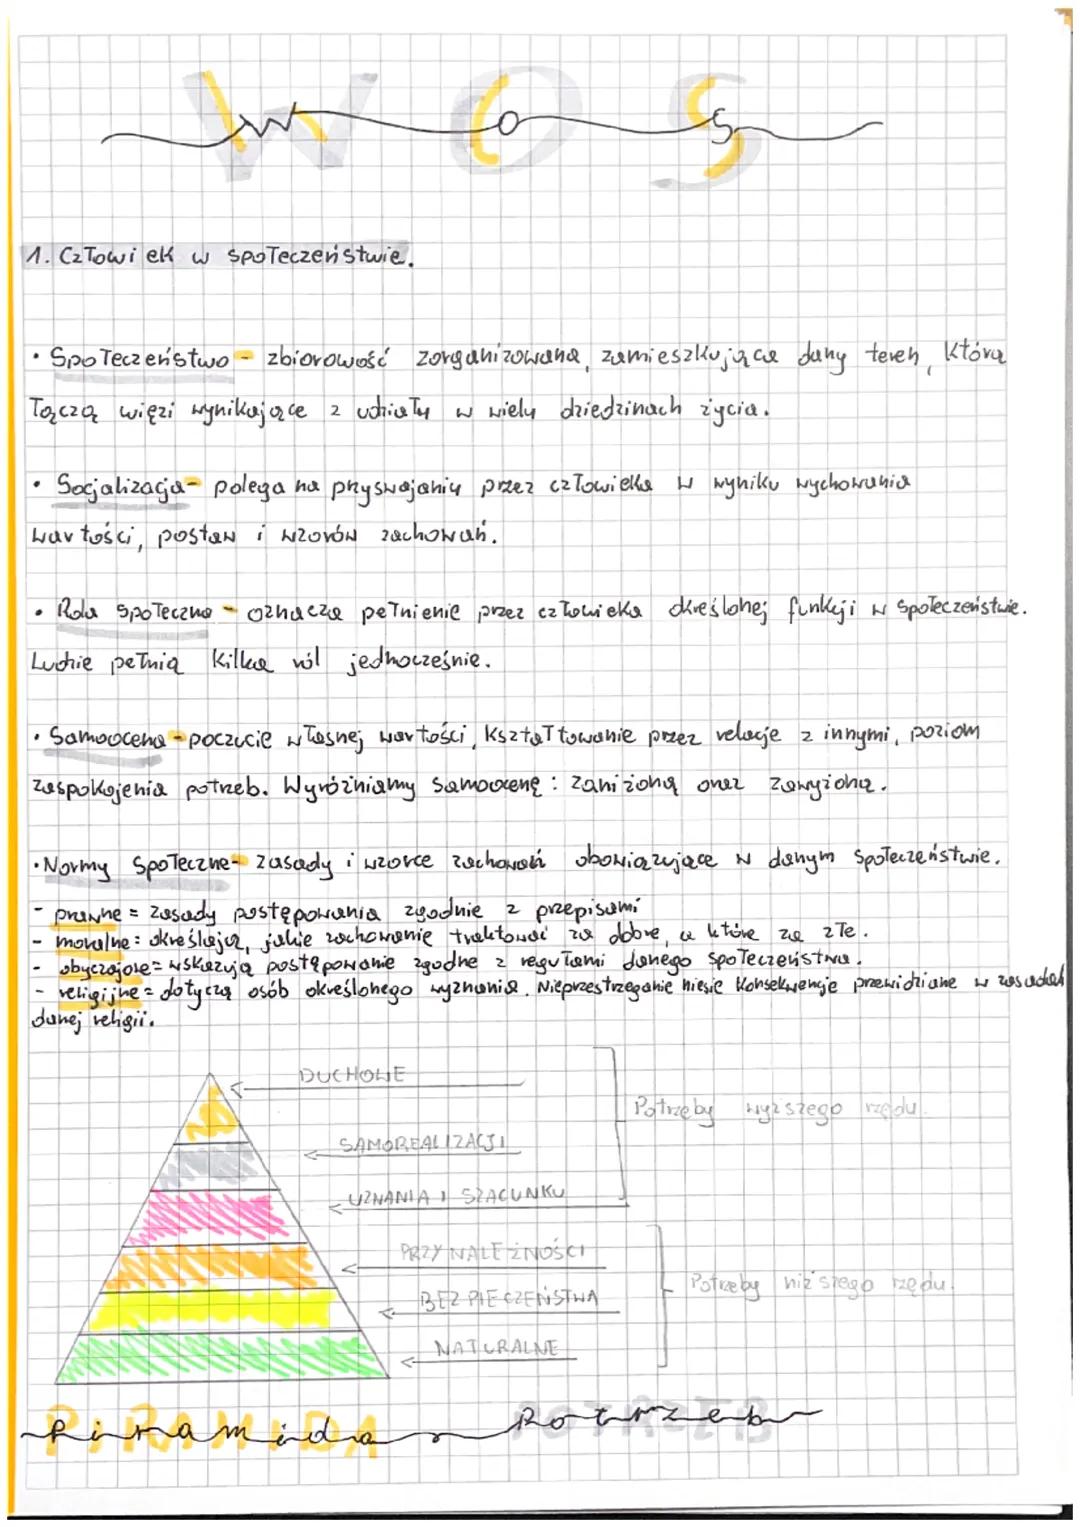 WOS
1. Człowiek w społeczeństwie.
• Społeczeństwo - zbiorowość zorganizowana, zamieszkująca dany teren, którą
łączą więzi wynikające z udziału w wielu dziedzinach życia.
• Socjalizacja - polega na pryswajaniu przez człowieka w wyniku wychowania
wartości, postaw i wzorów zachowań.
• Rola społeczna - oznacza pełnienie przez człowieka określonej funkcji w społeczeństwie.
Ludzie pełnią kilka ról jednocześnie.
• Samoocena - poczucie własnej wartości, kształtowanie przez relacje z innymi, poziom
zaspokojenia potrzeb. Wyróżniamy samoocenę: zaniżoną oraz zawyżoną.
• Normy społeczne - zasady i wzorce zachowań obowiązujące w danym społeczeństwie.
- prawne = zasady postępowania zgodnie z przepisami
- moralne = określają, jakie zachowanie traktować za dobre, a które za złe.
- obyczajowe = wskazują postępowanie zgodne z regułami danego społeczeństwa.
- religijne = dotyczą osób określonego wyznania. Nieprzestrzeganie niesie konsekwencje przewidziane w zasadach
danej religii.
DUCHOWE
Potrzeby wyższego rzędu.
SAMOREALIZACJI
UZNANIA I SZACUNKU
PRZYNALEŻNOŚCI
Potrzeby niższego rzędu.
BEZPIECZEŃSTWA
NATURALNE
Piramida Potrzeb